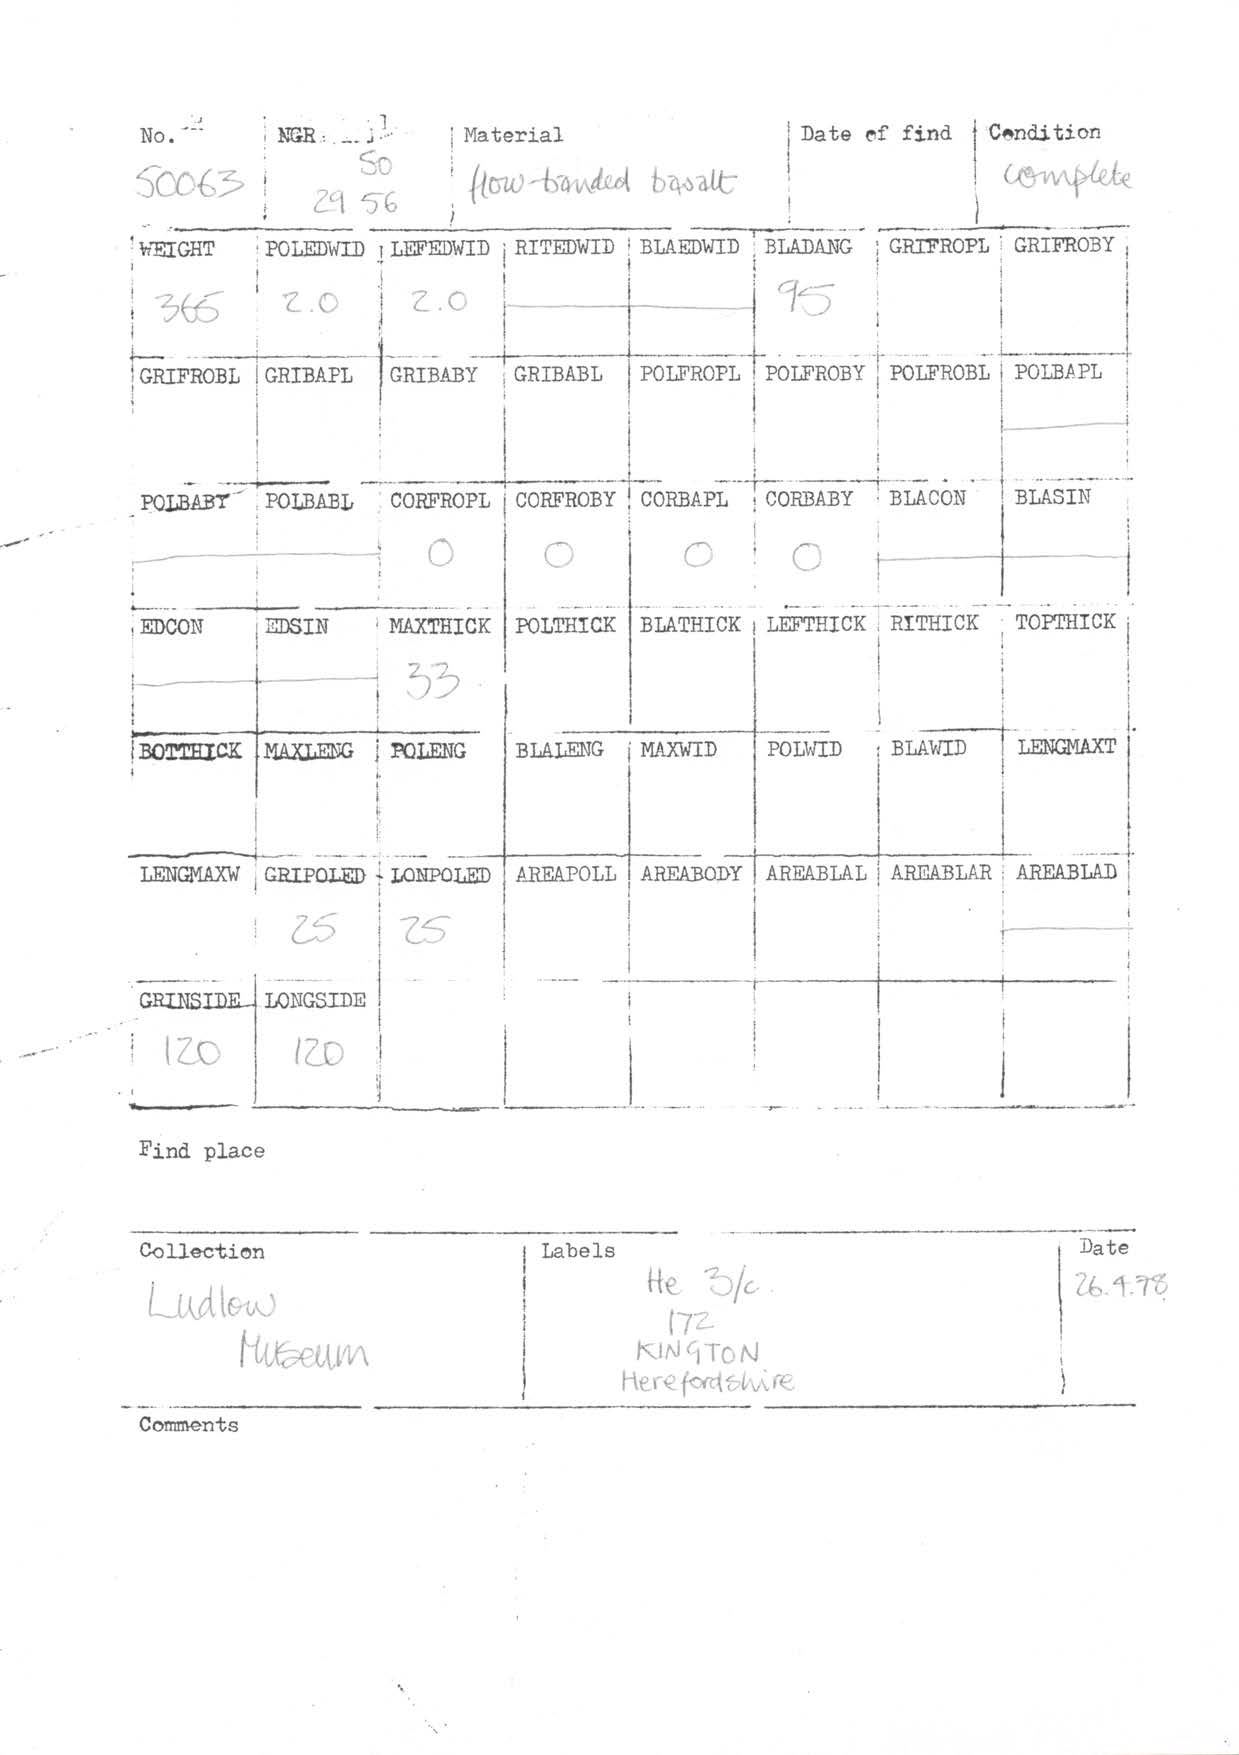 No. NGR Material Date of find Condition
SO
50063 29 56 flow-banded basalt complete
WEIGHT POLEDWID LEFEDWID RITEDWID BLAEDWID BLADANG GRIFROPL GRIFROBY
365 2.0 2.0 95
GRIFROBL GRIBAPL GRIBABY GRIBABL POLFROPL POLFROBY POLFROBL POLBAPL
POLBABY POLBABL CORFROPL CORFROBY CORBAPL CORBABY BLACON BLASIN
0 0 0 0
EDCON EDSIN MAXTHICK POLTHICK BLATHICK LEFTHICK RITHICK TOPTHICK
33
BOTTHICK MAXLENG POLENG BLALENG MAXWID POLWID BLAWID LENGMAXT
LENGMAXW GRIPOLED LONPOLED AREAPOLL AREABODY AREABLAL AREABLAR AREABLAD
25 25
GRINSIDE LONGSIDE
120 120
Find place
Collection Labels Date
Ludlow
Museum
He 3/c.
172
KINGTON
Herefordshire
26.4.78
Comments